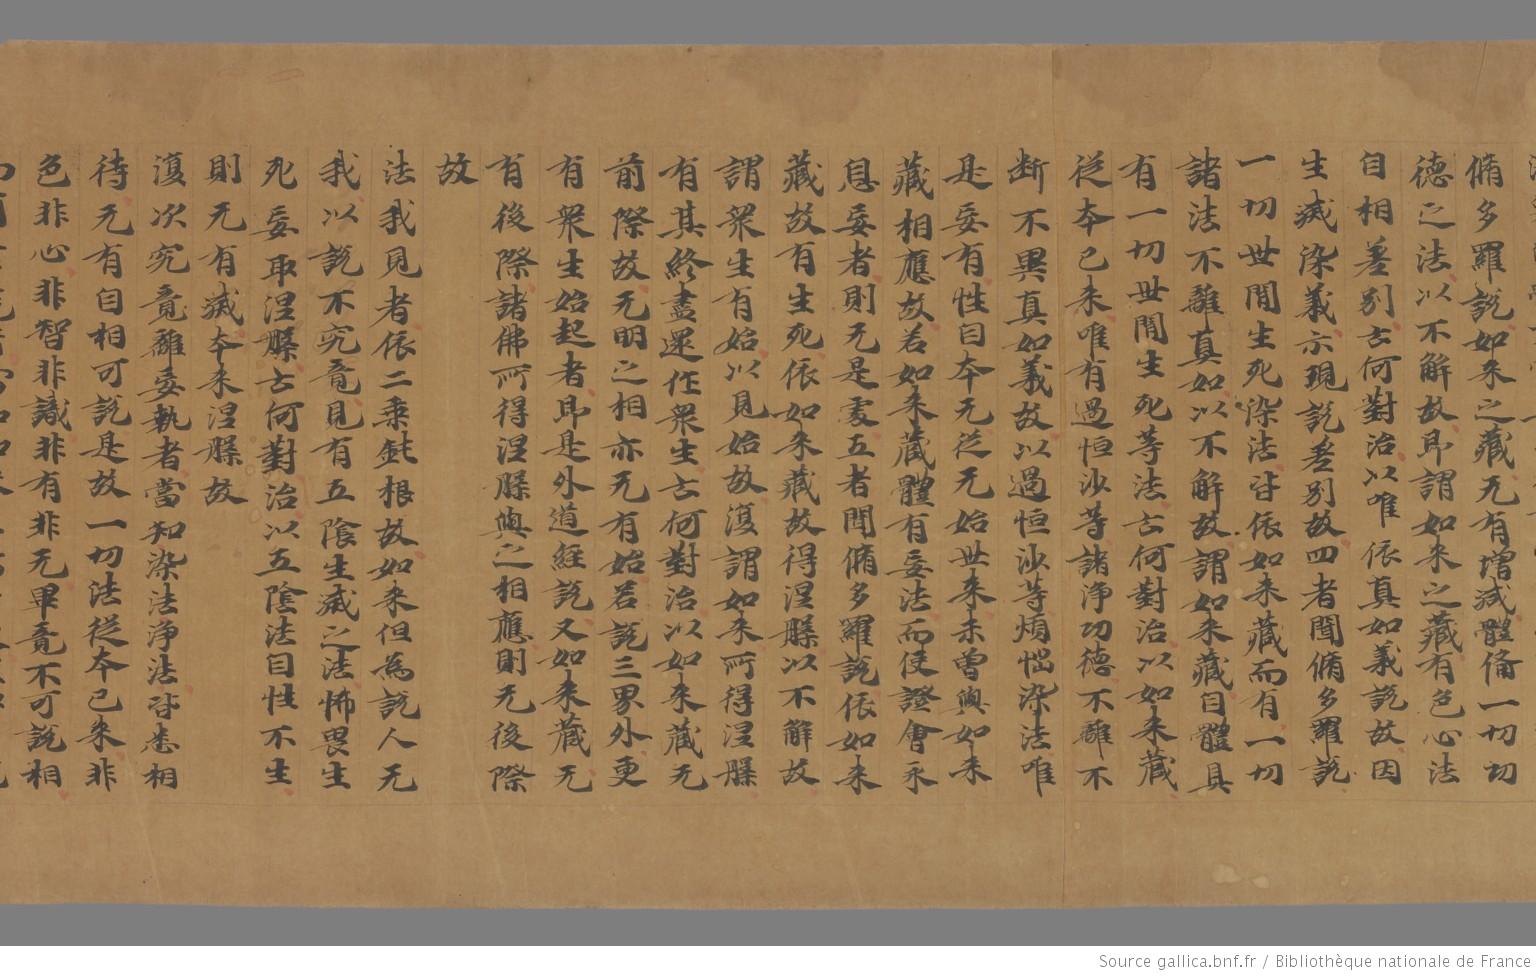 脩多羅說如来之藏无有增減體俻一切功
德之法以不解故即謂如来之藏有色心法
自相差别云何對治以唯依真如義說故因
生滅染義示現說差别故四者聞脩多羅說
一切世間生死染法皆依如来藏而有一切
諸法不離真如以不解故謂如来藏自體具
有一切世間生死等法云何對治以如来藏
從本已来唯有過恒沙等諸淨功德不離不
断不異真如義故以過恒沙等煩惱染法唯
是妄有性自本无從无始世来未曾與如来
藏相應故若如来藏體有妄法而使證會永
息妄者則无是處五者聞脩多羅說依如来
藏故有生死依如来藏故得涅槃以不解故
謂衆生有始以見始故復謂如来所得涅槃
有其終盡還作衆生云何對治以如来藏无
前際故无明之相亦无有始若說三界外更
有衆生始起者即是外道經說又如来藏无
有後際諸佛所得涅槃與之相應則无後際
故
法我見者依二乘鈍根故如来但為說人无
我以說不究竟見有五陰生滅之法怖畏生
死妄取涅槃云何對治以五陰法自性不生
則无有滅本来涅槃故
復次究竟離妄執者當知染法淨法皆悉相
待无有自相可說是故一切法從本已来非
色非心非智非識非有非无畢竟不可說相
Source gallica.bnf.fr / Bibliothèque nationale de France